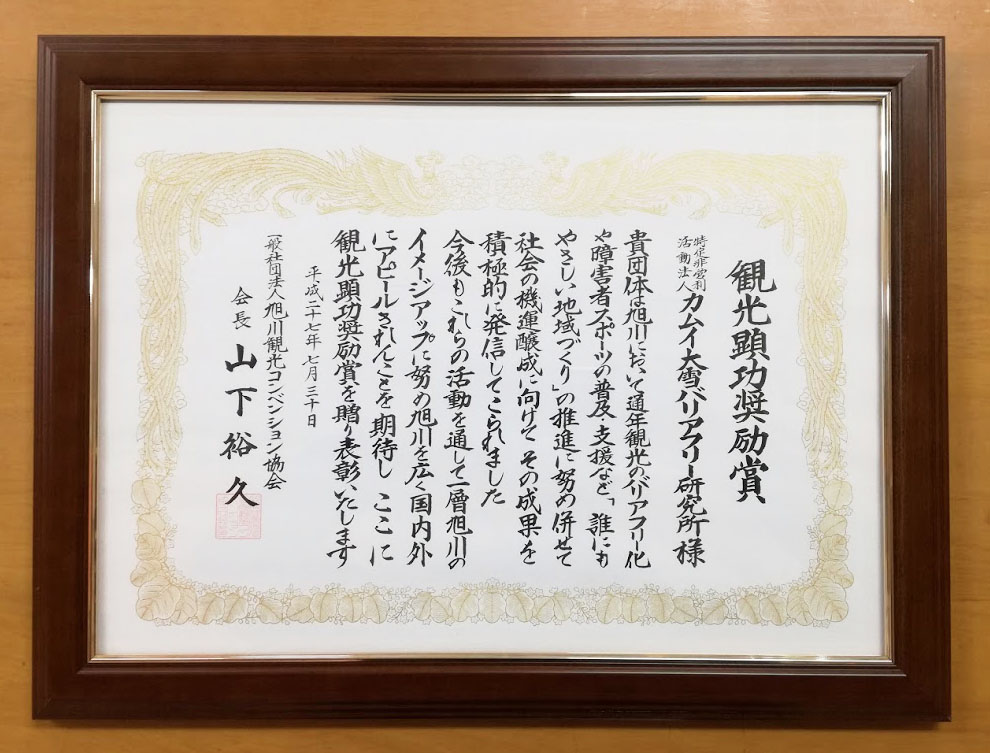 観光顕功奨励賞
特定非営利
活動法人
カムイ大雪バリアフリー研究所様
貴団体は旭川において通年観光のバリアフリー化
や障害者スポーツの普及、支援など、「誰にも
やさしい地域づくり」の推進に努め併せて
社会の機運醸成に向けて その成果を
積極的に発信してこられました
今後もこれらの活動を通して一層旭川の
イメージアップに努め旭川を広く国内外
にアピールされんことを期待し ここに
観光顕功奨励賞を贈り表彰いたします
平成二十七年 七月 三十日
一般社団法人旭川観光コンベンション協会
会長 山下裕久